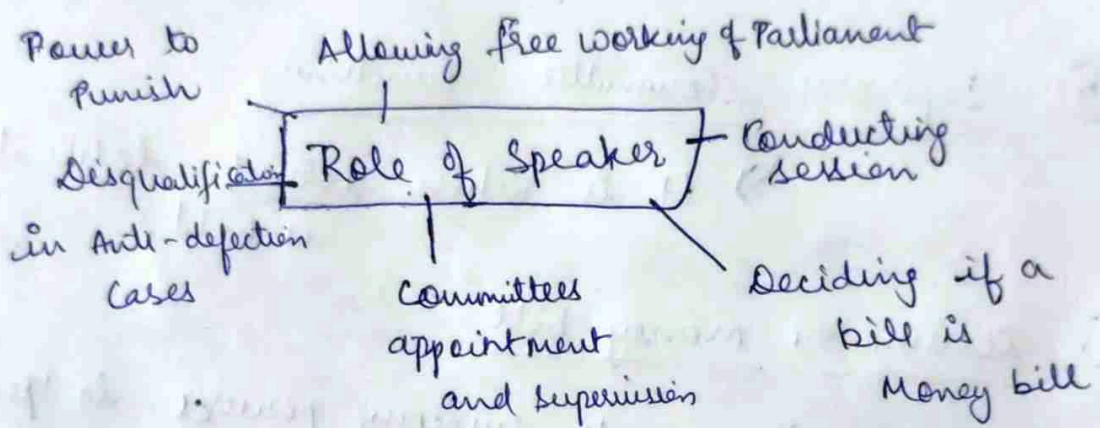 Power to
Punish
Allowing free working of Parliament
Role of Speaker
Conducting
session
Disqualification
in Anti-defection
Cases
Committees
appointment
and supervision
Deciding if a
bill is
Money bill